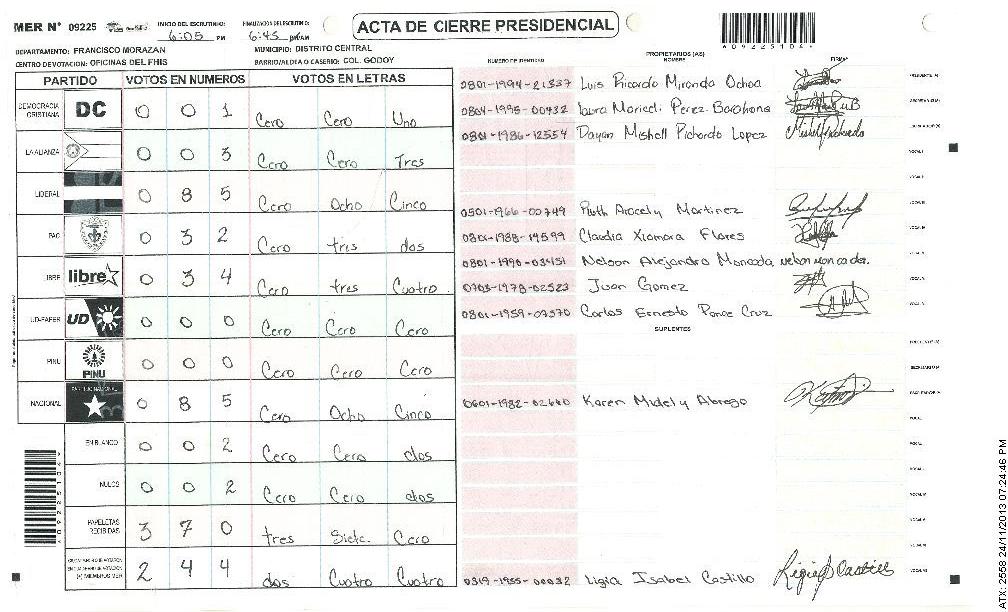 MER N° 09225 INICIO DEL ESCRUTINIO: 6:05 PM FINALIZACION DEL ESCRUTINIO: 6:45 PM
ACTA DE CIERRE PRESIDENCIAL
DEPARTAMENTO: FRANCISCO MORAZAN MUNICIPIO: DISTRITO CENTRAL
CENTRO DE VOTACION: OFICINAS DEL FHIS BARRIO/ALDEA O CASERIO: COL. GODOY
PARTIDO VOTOS EN NUMEROS VOTOS EN LETRAS
DEMOCRACIA CRISTIANA DC 0 0 1 Cero Cero Uno
LA ALIANZA 0 0 3 Cero Cero Tres
LIBERAL 0 8 5 Cero Ocho Cinco
PAC 0 3 2 Cero tres dos
LIBRE libre 0 3 4 Cero tres Cuatro
UD-FAPER UD 0 0 0 Cero Cero Cero
PINU PINU 0 0 0 Cero Cero Cero
NACIONAL PARTIDO NACIONAL 0 8 5 Cero Ocho Cinco
EN BLANCO 0 0 2 Cero Cero dos
NULOS 0 0 2 Cero Cero dos
PAPELETAS RECIBIDAS 3 7 0 tres Siete Cero
(+) MIEMBROS MER 2 4 4 dos Cuatro Cuatro
PROPIETARIOS (AS)
NUMERO DE IDENTIDAD NOMBRE FIRMA
0801-1994-21337 Luis Ricardo Miranda Ochoa
0804-1995-00432 Laura Mariceli Perez Barahona
0801-1986-12554 Dayan Mishell Pichardo Lopez
0501-1966-00749 Ruth Aracely Martinez
0801-1988-14599 Claudia Xiomara Flores
0801-1990-03451 Nelson Alejandro Moncada
0703-1978-02523 Juan Gomez
0801-1959-07570 Carlos Ernesto Ponce Cruz
SUPLENTES
0601-1982-02660 Karen Midely Abrego
0319-1955-00032 Ligia Isabel Castillo
ATX: 2558 24/11/2013 07:24:46 PM